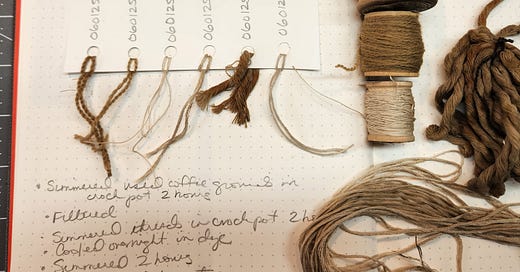 060125
060125
060125
060125
060125
060125
• Simmered used coffee grounds in
crock pot 2 hours
• Filtered
• Simmered threads in crock pot 2 
• Cooled overnight in dye
• Simmered 2 hours